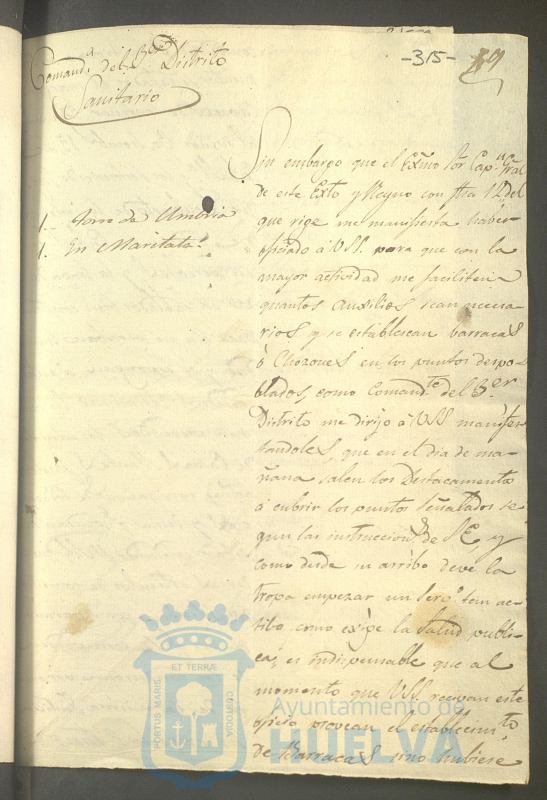 -315-
Comand.ª del 3.er Distrito
Sanitario
1. Torre de Umbria
1. En Maritata.
Sin embargo que el Exmo Sor Cap.n Gral
de este Exto y Reyno con fha 12 del
que rige me manifiesta haber
oficiado á VSS. para que con la
mayor actividad me faciliten
quantos auxilios sean necesa
rios y se establescan barracas
ó Chozones en los puntos despo
blados, como Comand.te del 3.er
Distrito me dirijo á VSS manifes
tandoles, que en el dia de ma
ñana salen los Destacamento
á cubrir los puntos señalados se
gun las instruccion.s de SE, y
como desde su arribo deve la
tropa empezar un serv.o tan ac
tibo como exije la salud publi
ca, es indispensable que al
momento que VSS. recivan este
oficio provean el establecim.to
de Barracas sino hubiese
PORTUS MARIS ET TERRÆ CUSTODIA
Ayuntamiento de
HUELVA